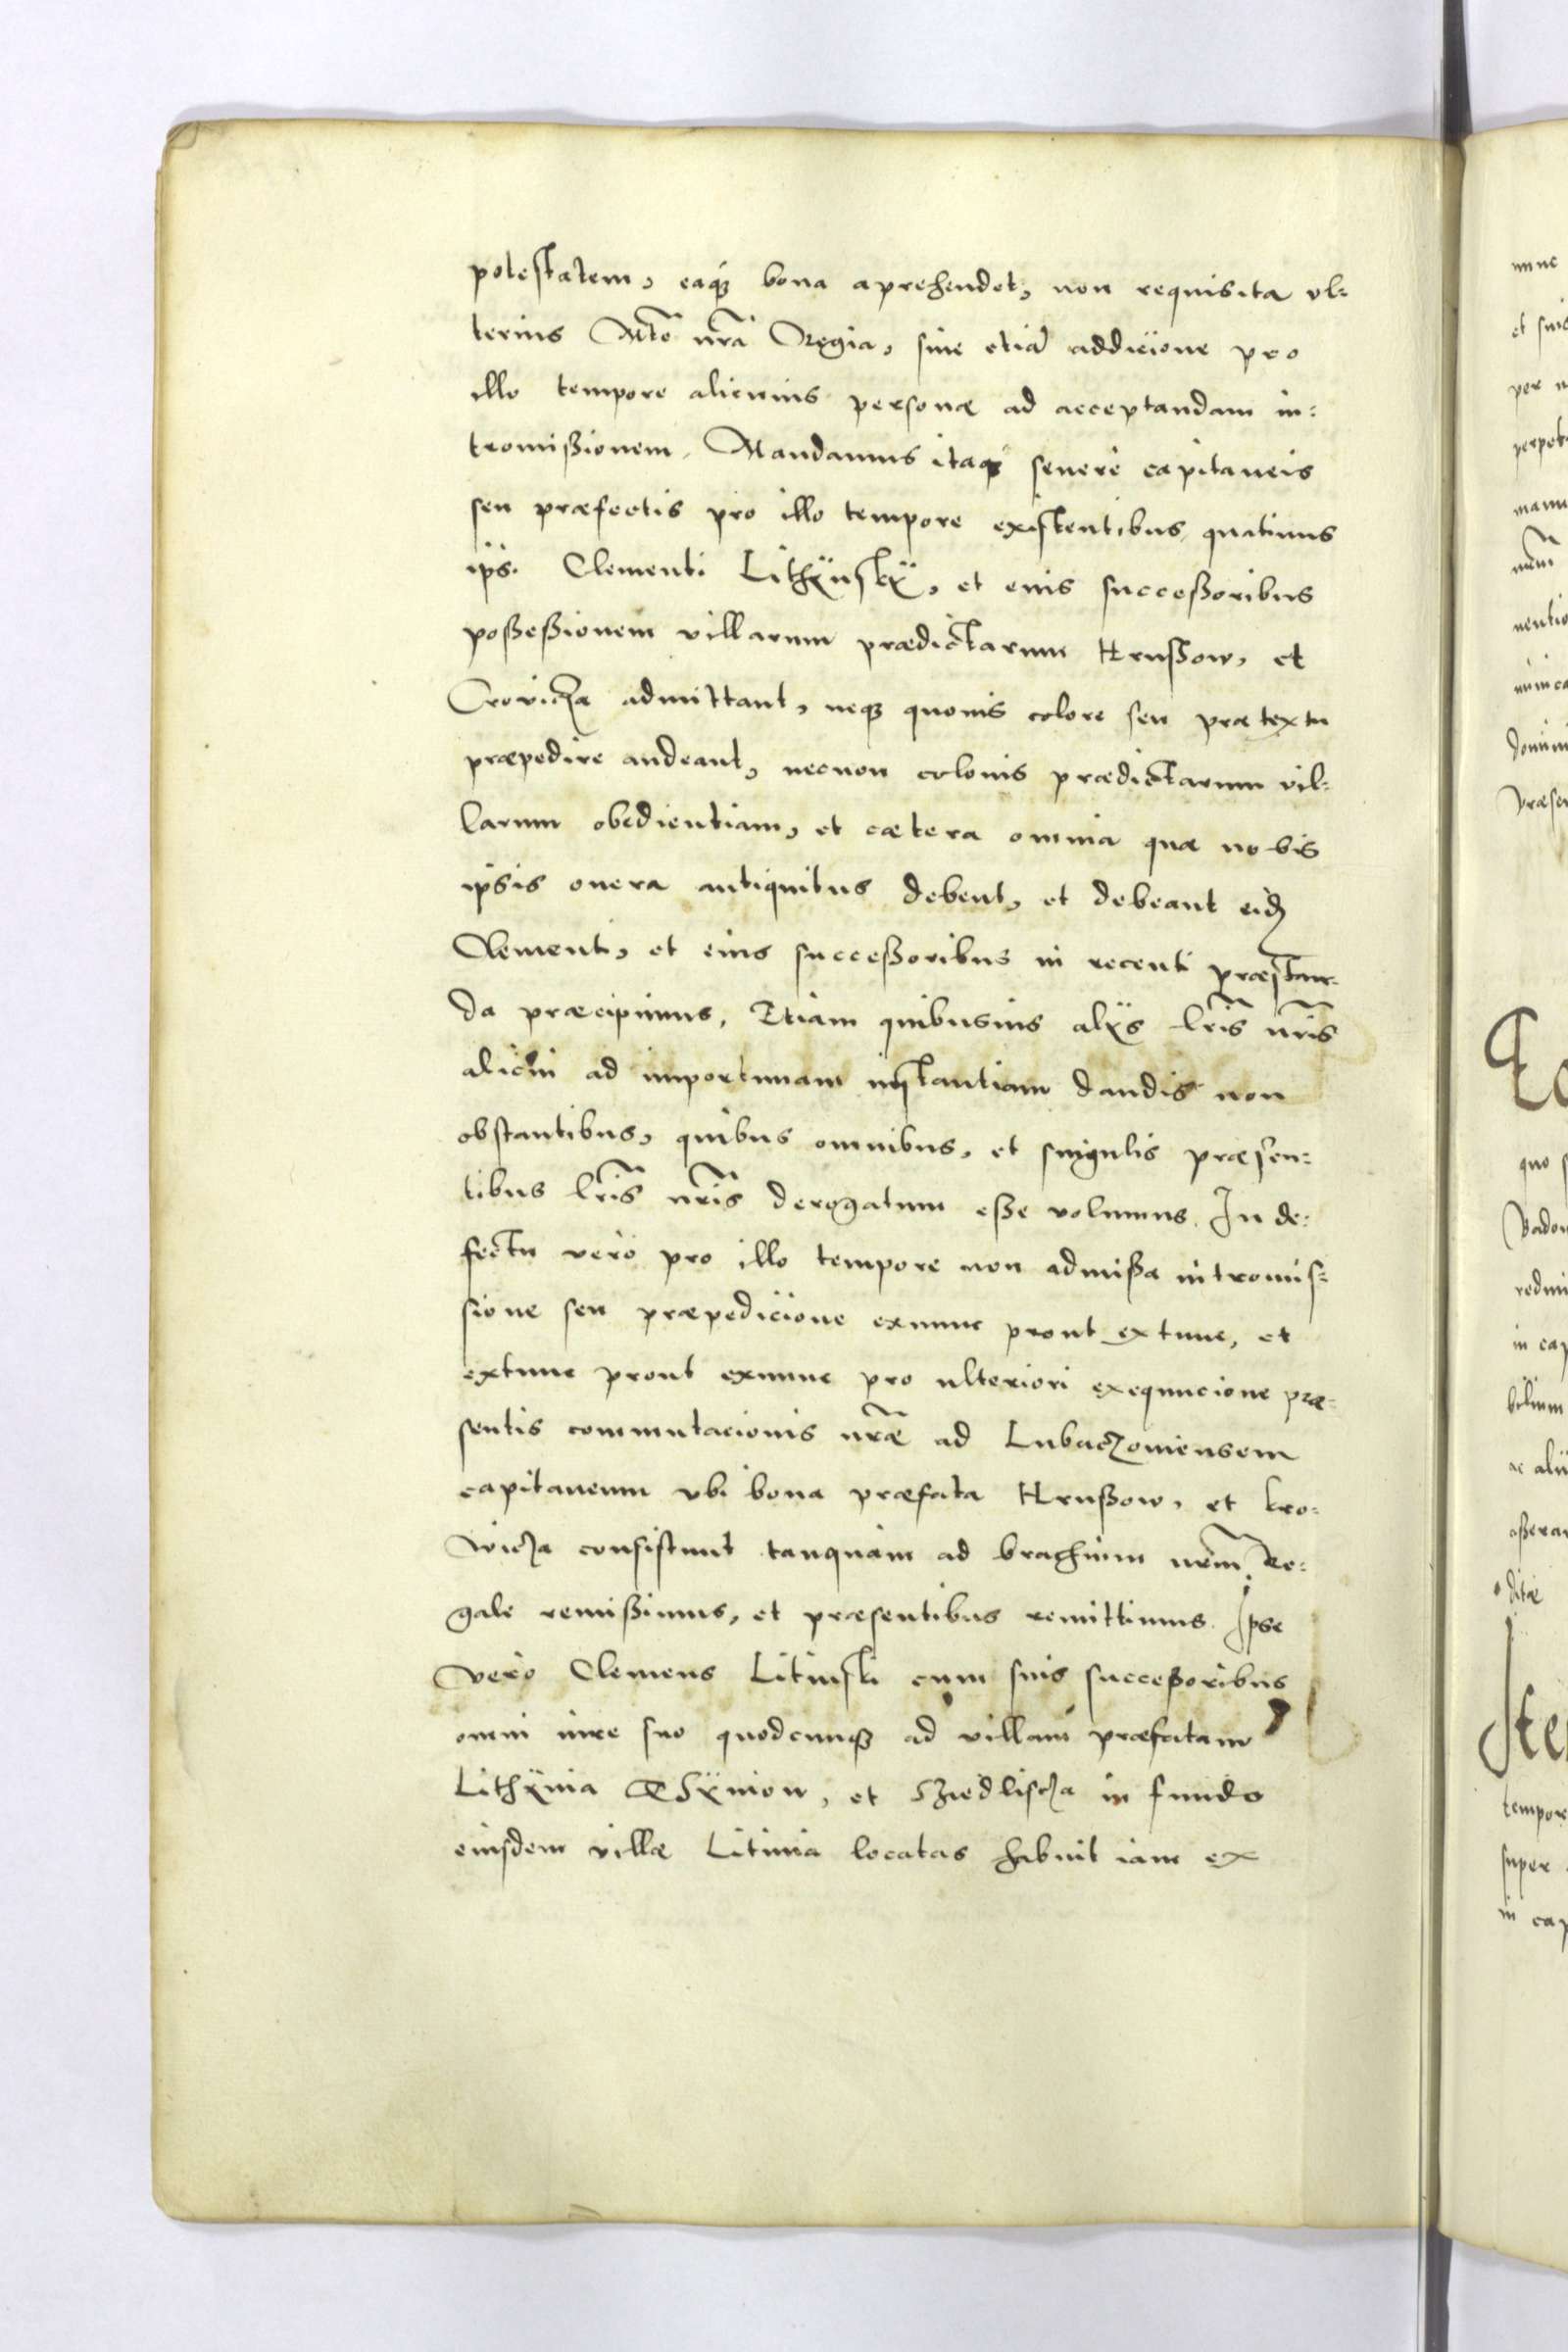 potestatem, eaq3 bona aprehendet, non requisita vl=
terius Mte nrã Regia, sine etiã addicione pro
illo tempore alicuius personæ ad acceptandam in=
tromißionem. Mandamus itaq3 seuerè capitaneis
seu præfectis pro illo tempore existentibus quatinus
ipsi Clementi Lithÿnskÿ, et eius succeßoribus
poßeßionem villarum prædictarum Hrußow, et
Crovicza admittant, neq3 quouis colore seu prætextu
præpedire audeant, necnon colonis prædictarum vil=
larum obedientiam, et cætera omnia quæ nobis
ipsis onera antiquitus debent, et debeant eid3
Clementi, et eius succeßoribus in recenti præstan=
da præcipimus. Etiam quibusuis alÿs lr̃is nr̃is
alicui ad importunam instantiam dandis non
obstantibus, quibus omnibus, et singulis præsen=
tibus lr̃is nr̃is derogatum eße volumus. In de=
fectu verò pro illo tempore non admißa intromis=
sione seu præpedicione exnunc prout extunc, et
extunc prout exnunc pro ulteriori exequucione præ=
sentis commutacionis nr̃æ ad Lubaczouiensem
capitaneum vbi bona præfata Hrußow, et kro=
wicza consistunt tanquàm ad brachium nr̃m Re=
gale remißimus, et præsentibus remittimus. Ipse
verò Clemens Litinski cum suis succeßoribus
omni iure suo quodcunq3 ad villam præfatam
Lithÿnia Thÿniow, et Sziedliscza in fundo
eiusdem villæ Litinia locatas habuit iam ex